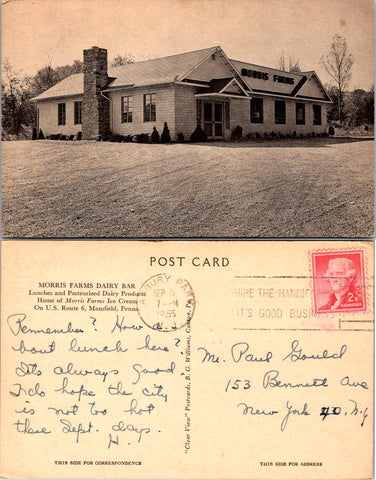 MORRIS FARMS
POST CARD
MORRIS FARMS DAIRY BAR
Lunches and Pasteurized Dairy Products
Home of Morris Farms Ice Cream
On U.S. Route 6, Mansfield, Penna.
SEP 5
1955
HIRE THE HANDICAPPED
IT'S GOOD BUSINESS
2¢
Remember? How a-
bout lunch here?
It's always good.
I do hope the city
is not too hot
these Sept. days.
H.
"Clear View" Postcards, B. G. Williams, Canton, Pa.
Mr. Paul Gould
153 Bennett Ave
New York 40, N.Y
THIS SIDE FOR CORRESPONDENCE
THIS SIDE FOR ADDRESS